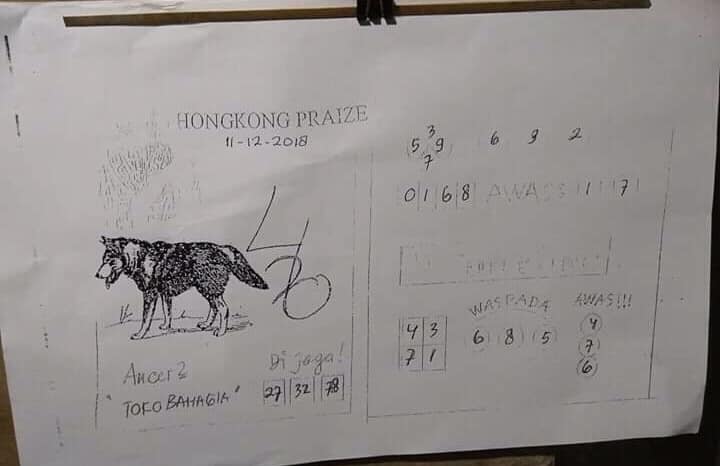 HONGKONG PRAIZE
11-12-2018
Ancer2
"TOKO BAHAGIA"
Di jaga!
27 32 78
3
5 9 6 9 2
7
0 1 6 8 AWASS 1 7
WASPADA
4 3
7 1
6 8 5
AWAS!!!
4
7
6